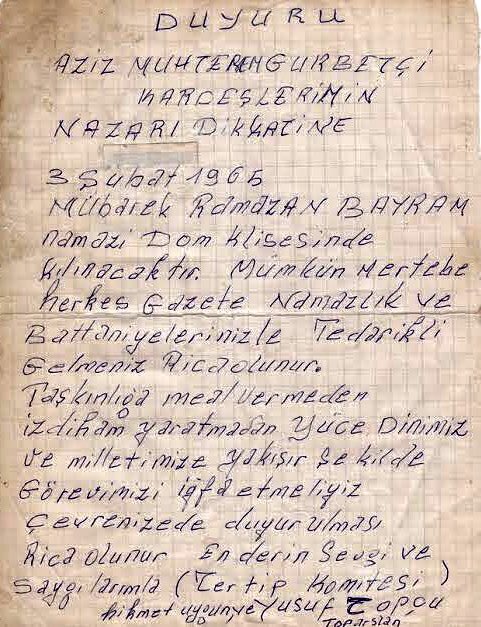 DUYURU
AZİZ MUHTEREM GURBETÇİ
KARDEŞLERİMİN
NAZARI DİKKATİNE
3 Şubat 1965
Mübarek Ramazan BAYRAM
namazi Dom Klisesinde
kılınacaktır. Mümkün Mertebe
herkes Gazete Namazlık ve
Battaniyelerinizle Tedarikli
Gelmeniz Rica olunur.
Taşkınlığa meal vermeden
izdiham yaratmadan Yüce Dinimiz
ve milletimize yakışır şekilde
Görevimizi iğfa etmeliyiz
Çevrenizede duyurulması
Rica olunur En derin Sevgi ve
Saygılarımla (Tertip Komitesi)
hikmet Yusuf Topçu
Toparslan